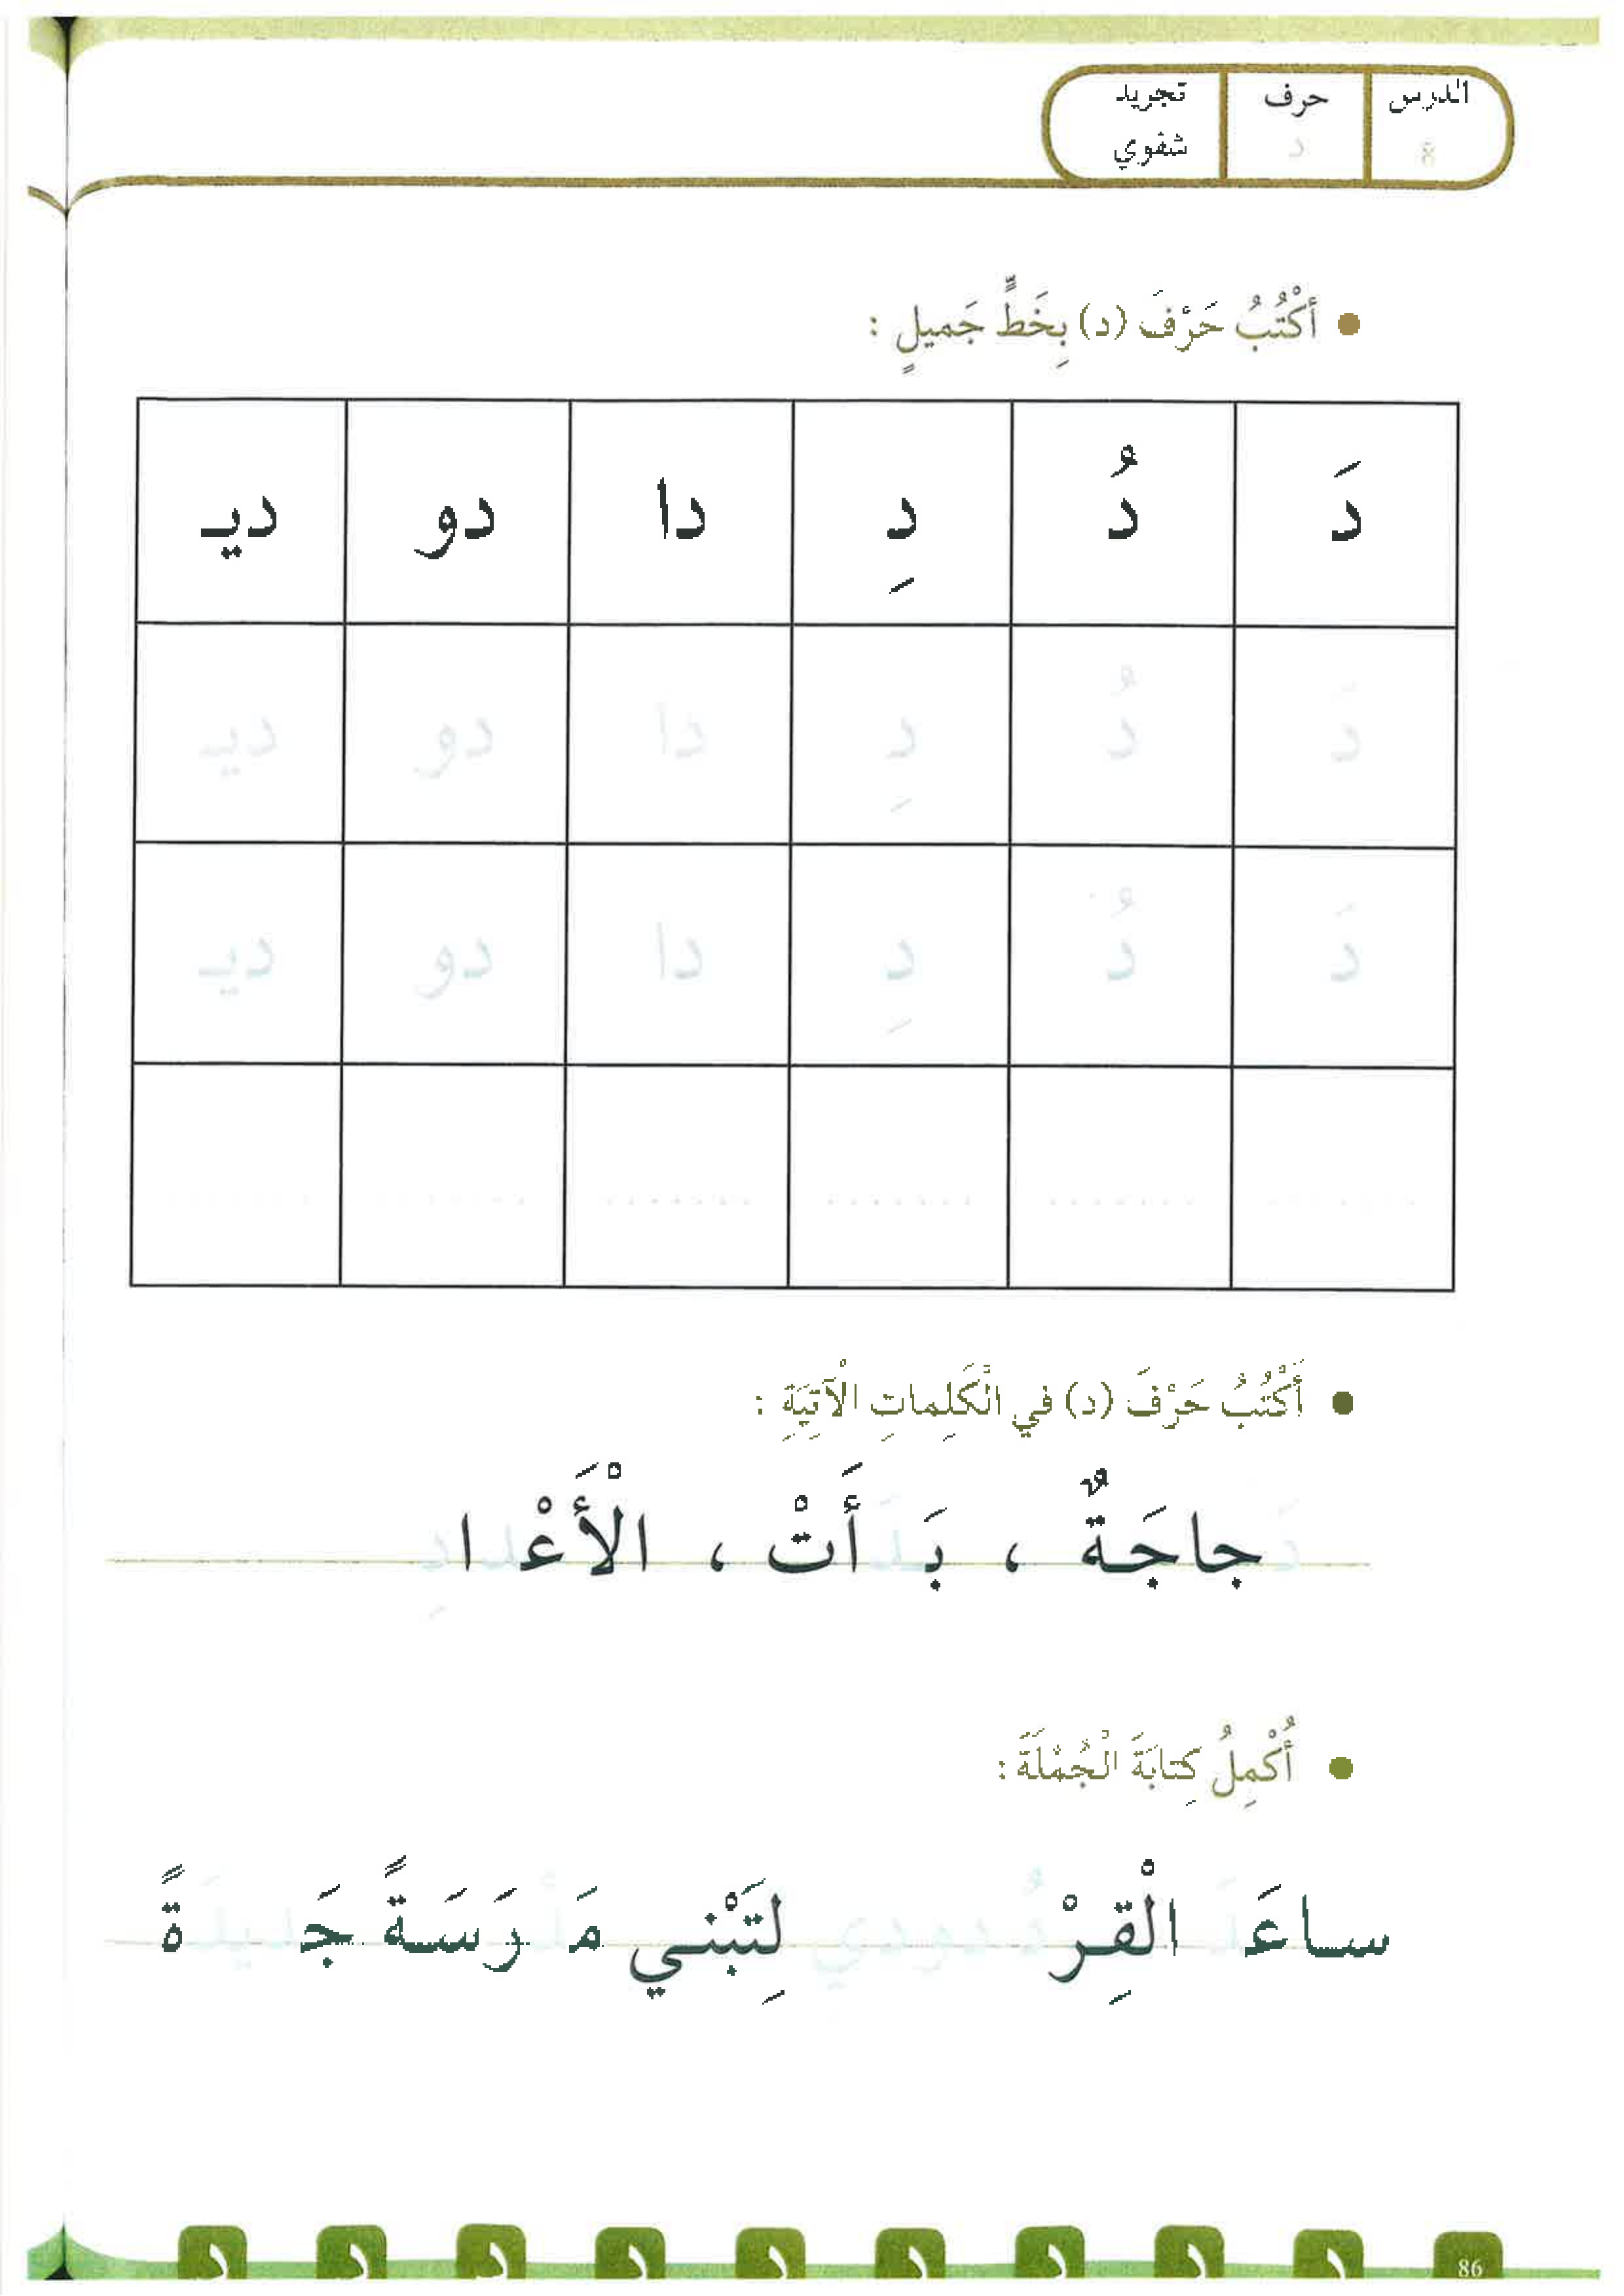 الدرس حرف تجريد
8 د شفوي
• أَكْتُبُ حَرْفَ (د) بِخَطٍّ جَميلٍ :
دَ دُ دِ دا دو ديـ
دَ دُ دِ دا دو ديـ
دَ دُ دِ دا دو ديـ
....... ....... ....... ....... ....... .......
• أَكْتُبُ حَرْفَ (د) في الْكَلِماتِ الْآتِيَةِ :
دَجاجَةٌ ، بَـدَأَتْ ، الْأَعْدادِ
• أُكْمِلُ كِتابَةَ الْجُمْلَةَ :
ساعَدَ الْقِرْدُ دودي لِتَبْني مَدْرَسَةً جَديدَةً
د د د د د د د د د 86